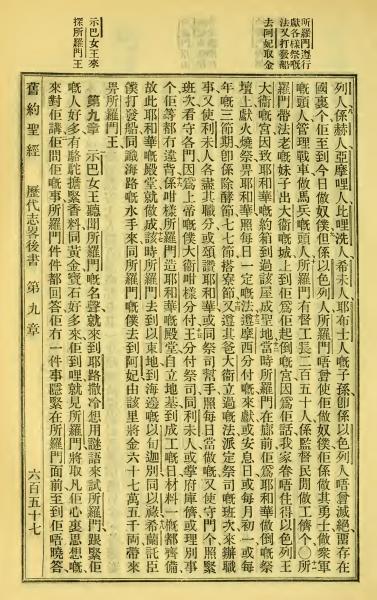 所羅門遵行
獻各樣祭嘅
法又打發船
去阿妃取金
示巴女王來
探所羅門王
列人係赫人亞摩哩人比哩洗人希未人耶布士人嘅子孫卽係以色列人唔曾滅絕畱存在
國裏个佢至到今日做奴僕但係以色列人所羅門唔曾使佢做奴僕佢係其勇士做衆軍
嘅頭人管理戰車做馬兵嘅頭人所羅門有督工長二百五十人係監督民閒做工儕个〇所
羅門帶法老嘅妹子出大衞嘅城上到佢爲佢起倒嘅宮因爲佢話我家眷唔住得以色列王
大衞嘅宮因致耶和華嘅約箱到過該屋成聖地當時所羅門在廊前佢爲耶和華做倒嘅祭
壇上獻火燒祭畀耶和華照每日一定嘅法遵摩西分付嘅來獻或安息日或每月初一或每
年嘅三節期卽係除酵節七七節搭寮節又遵其爸大衞立過嘅法派定祭司嘅班次來辦職
事又使利未人各盡其職分或頌讚耶和華或同祭司幫手照每日當做嘅又使守門个照緊
班次看守各門因爲上帝嘅僕大衞咁樣分付王分付祭司同利未人或掌府庫儕或理別事
个佢等都冇違背係咁樣所羅門造耶和華嘅殿堂自立地基到成工嘅日材料一槪都齊備
故此耶和華嘅殿堂就做成該時所羅門去到以東地到海邊嘅以旬迦別同以祿希蘭託臣
僕打發船同識海路嘅水手來同所羅門嘅僕去到阿妃由該里將金六十七萬五千兩帶來
畀所羅門王
第九章 示巴女王聽聞所羅門嘅名聲就來到耶路撒冷想用謎語來試所羅門跟緊佢
嘅人好多有駱駝擔緊香料同黃金寶石好多來佢到哩就見所羅門將取凡佢心裏思想嘅
來對佢講佢問佢嘅事所羅門件件都回答佢冇一件事隱緊在所羅門面前至到佢唔曉答
舊約聖經 歷代志畧後書 第九章 六百五十七